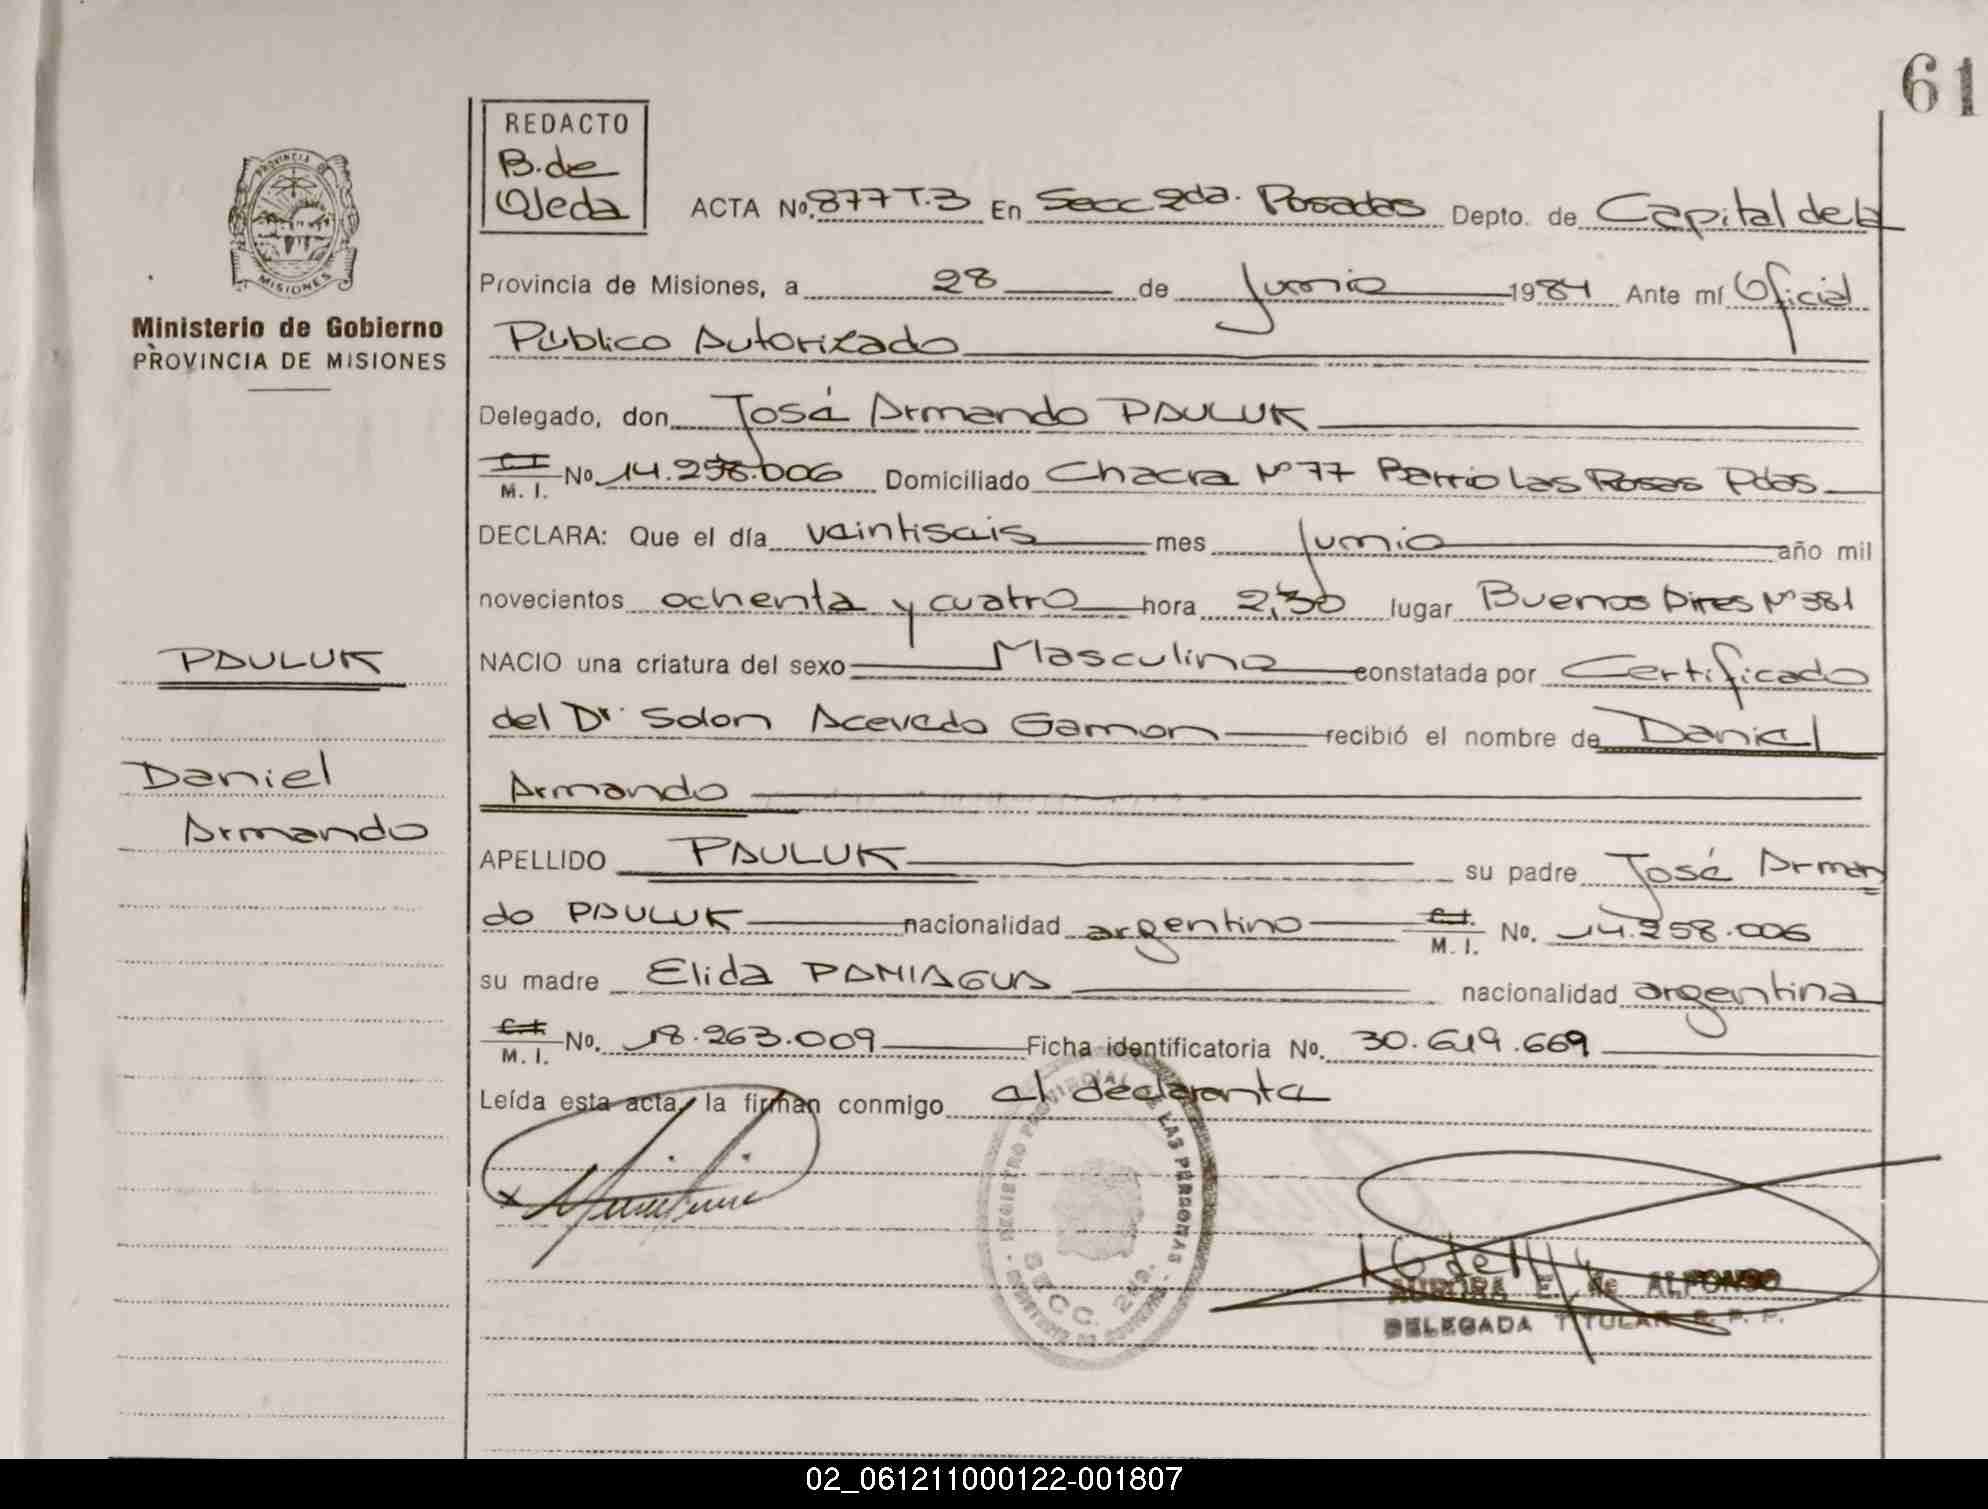 61
REDACTO
B. de
Ojeda
PROVINCIA DE
MISIONES
Ministerio de Gobierno
PROVINCIA DE MISIONES
ACTA No. 877 T.3 En Secc 2da. Posadas Depto. de Capital de la
Provincia de Misiones, a 28 de Junio 1984 Ante mí Oficial
Público Autorizado
Delegado, don José Armando PAULUK
C.I. M. I. No. 14.258.006 Domiciliado Chacra Nº 77 Barrio Las Rosas Pdas.
DECLARA: Que el día veintiseis mes Junio año mil
novecientos ochenta y cuatro hora 2,30 lugar Buenos Aires Nº 381
NACIO una criatura del sexo Masculino constatada por Certificado
del Dr. Solon Acevedo Gamon recibió el nombre de Daniel
Armando
APELLIDO PAULUK su padre José Arman
do PAULUK nacionalidad argentino C.I. M. I. No. 14.258.006
su madre Elida PANIAGUA nacionalidad argentina
C.I. M. I. No. 18.263.009 Ficha identificatoria No. 30.619.669
Leída esta acta, la firman conmigo el declarante
PAULUK
Daniel
Armando
REGISTRO PROVINCIAL DE LAS PERSONAS
SECC. 2da.
AURORA E. de ALFONSO
DELEGADA TITULAR R. P. P.
02_061211000122-001807